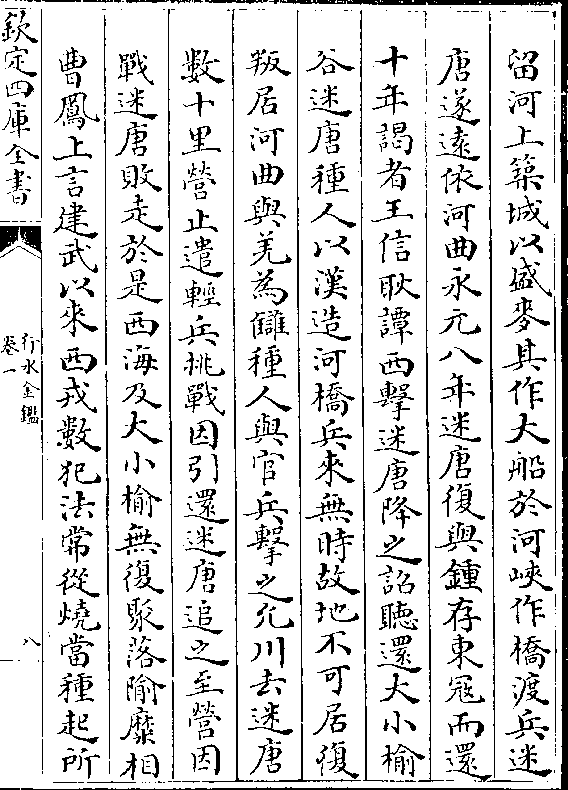 留河上築城以盛麥其作大船於河峽作橋渡兵迷
唐遂遠依河曲永元八年迷唐復與鍾存東寇而還
十年謁者王信耿譚西擊迷唐降之詔聽還大小榆
谷迷唐種人以漢造河橋兵來無時故地不可居復
叛居河曲與羌為讎種人與官兵擊之允川去迷唐
數十里營止遣輕兵挑戰因引還迷唐追之至營因
戰迷唐敗走於是西海及大小榆無復聚落隃麋相
曹鳳上言建武以來西戎數犯法常從燒當種起所
欽定四庫全書
行水金鑑
卷一
八